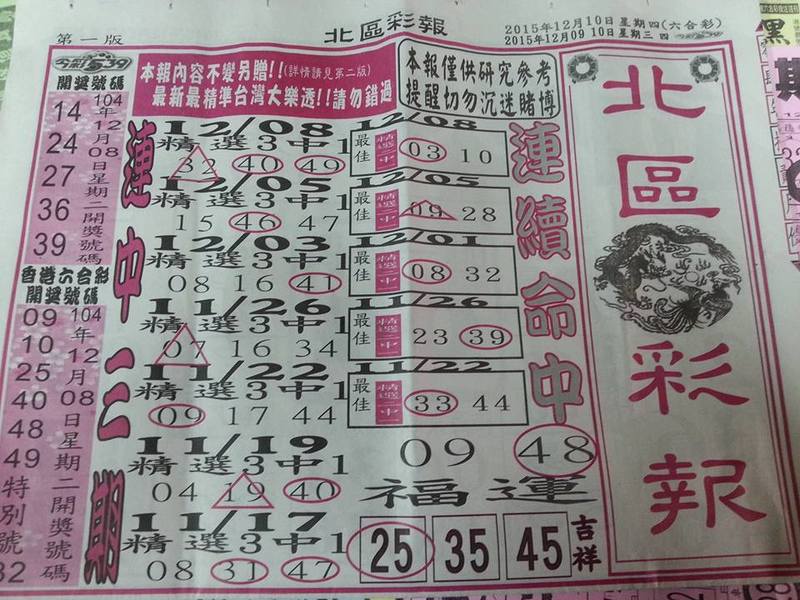 第一版
北區彩報
2015年12月10日 星期四(六合彩)
2015年12月09 10日星期三 四
今彩539
開獎號碼
104年12月08日星期二開獎號碼
14
24
27
36
39
香港六合彩
開獎號碼
104年12月08日星期二開獎號碼
09
10
25
40
48
49
特別號
32
本報內容不變另贈!!(詳情請見第二版)
最新最精準台灣大樂透!!請勿錯過
本報僅供研究參考
提醒切勿沉迷賭博
連中三期
12/08
精選3中1
32 40 49
12/05
精選3中1
15 46 47
12/03
精選3中1
08 16 41
11/26
精選3中1
07 16 34
11/22
精選3中1
09 17 44
11/19
精選3中1
04 19 40
11/17
精選3中1
08 31 47
12/08
最佳 精選二中一 03 10
12/05
最佳 精選二中一 09 28
12/01
最佳 精選二中一 08 32
11/26
最佳 精選二中一 23 39
11/22
最佳 精選二中一 33 44
連續命中
09 48
福運
25 35 45
吉祥
北區彩報